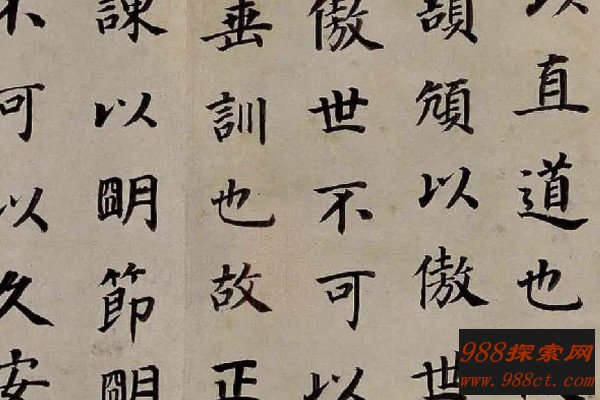 以直道也
頡頏以傲世
傲世不可以
垂訓也故正
諫以朙節朙
不可以久安
988探索网
www.988ct.com